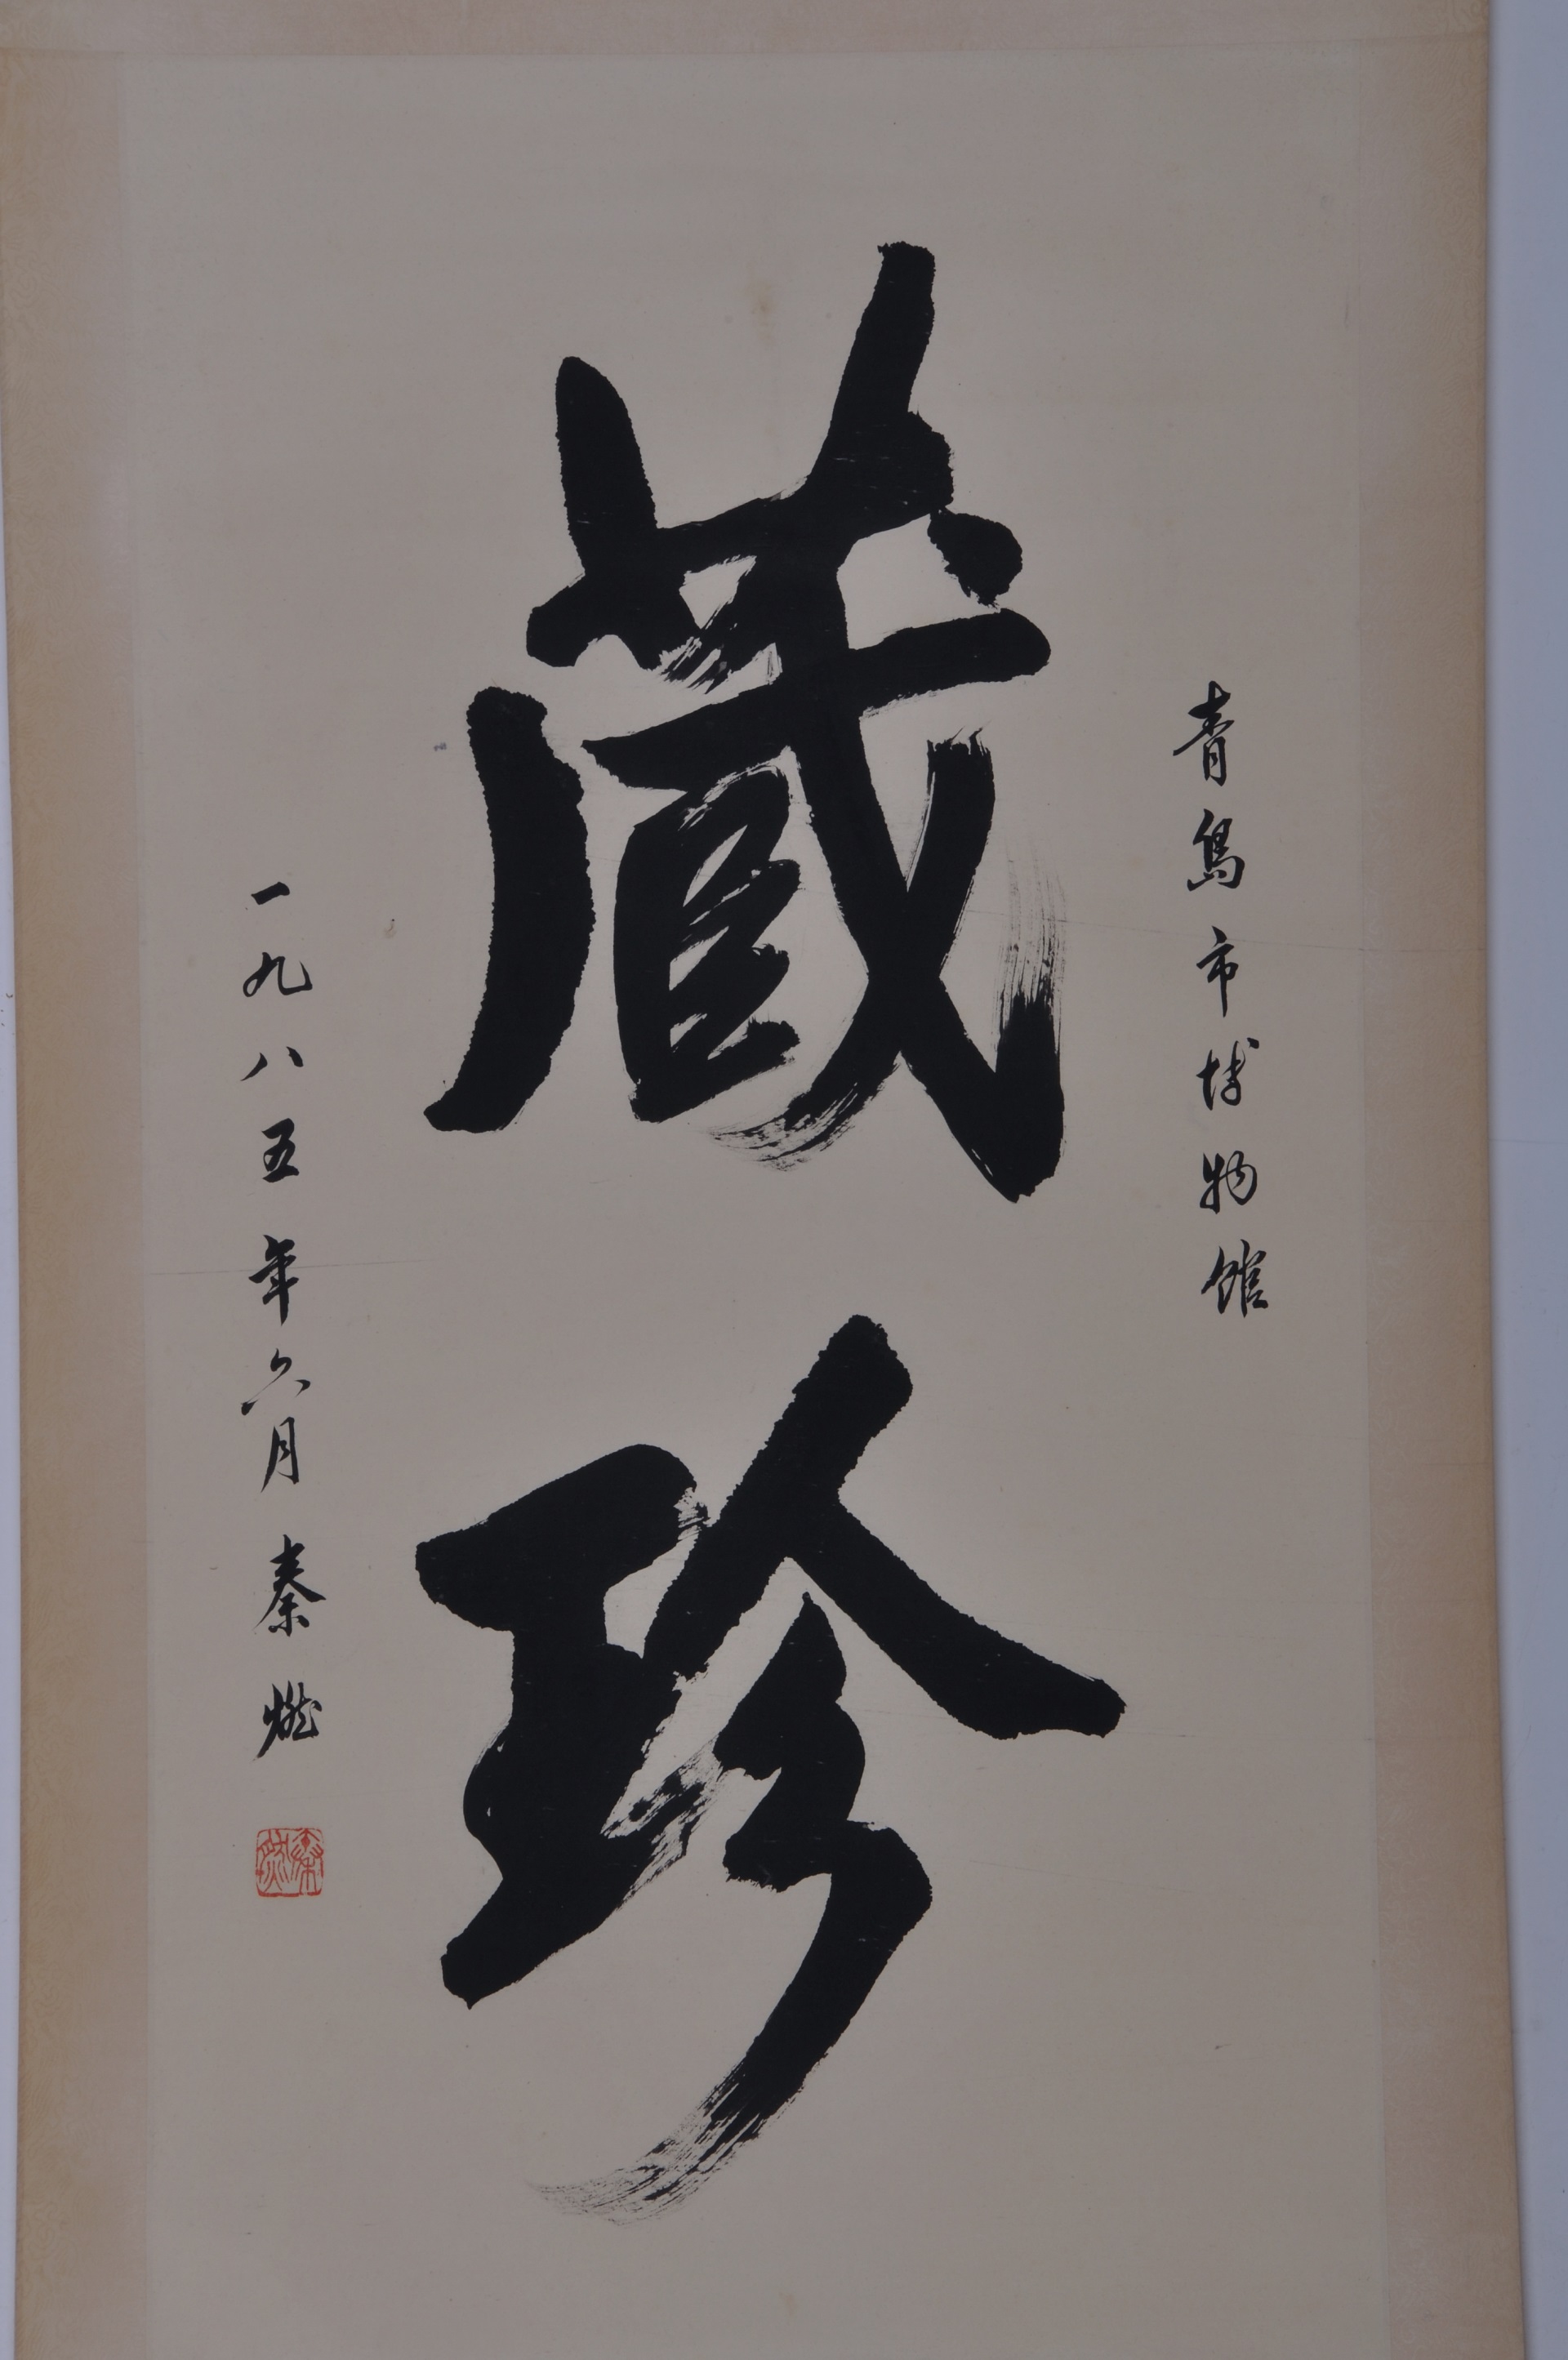 青島市博物館
藏珍
一九八五年六月 秦燃